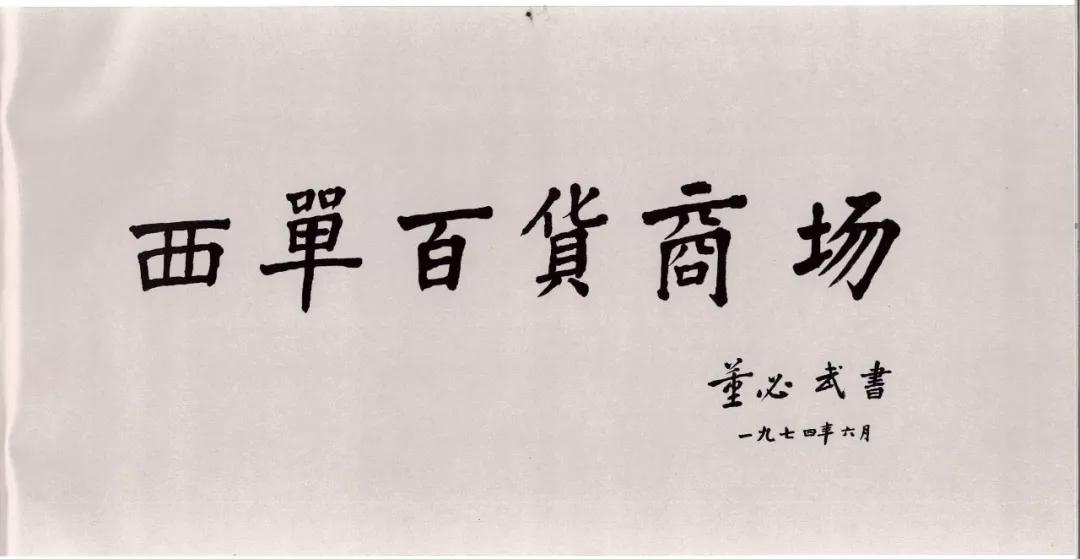 西單百貨商场
董必武書
一九七四年六月